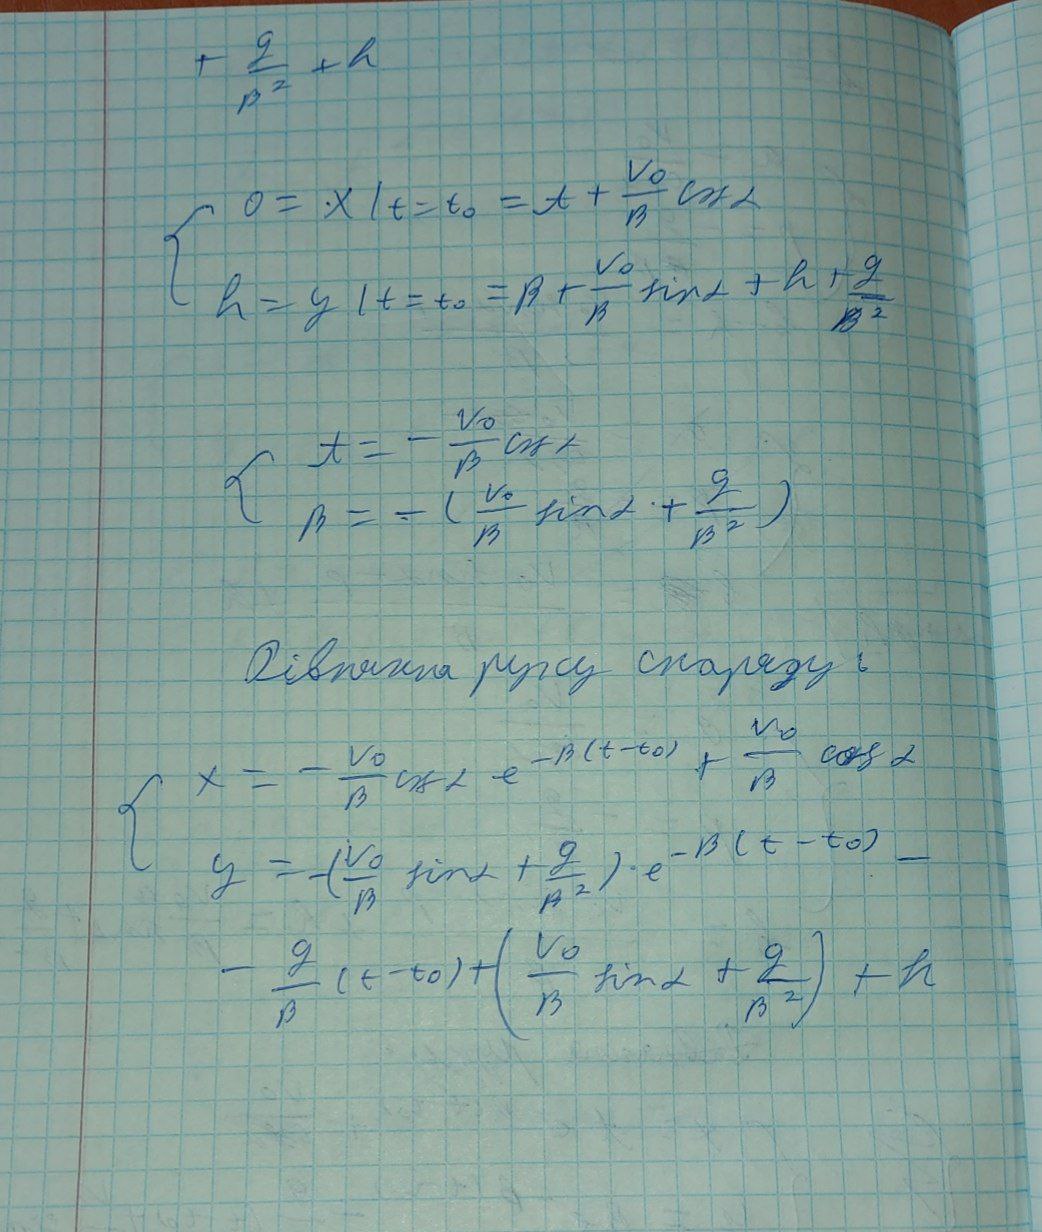 + g/β² + h
0 = x|t=t₀ = A + V₀/β cos α
h = y|t=t₀ = B + V₀/β sin α + h + g/β²
A = - V₀/β cos α
B = - (V₀/β sin α + g/β²)
Рівняння руху снаряду:
x = - V₀/β cos α e^(-β(t-t₀)) + V₀/β cos α
y = -(V₀/β sin α + g/β²)·e^(-β(t-t₀)) -
- g/β (t-t₀) + (V₀/β sin α + g/β²) + h